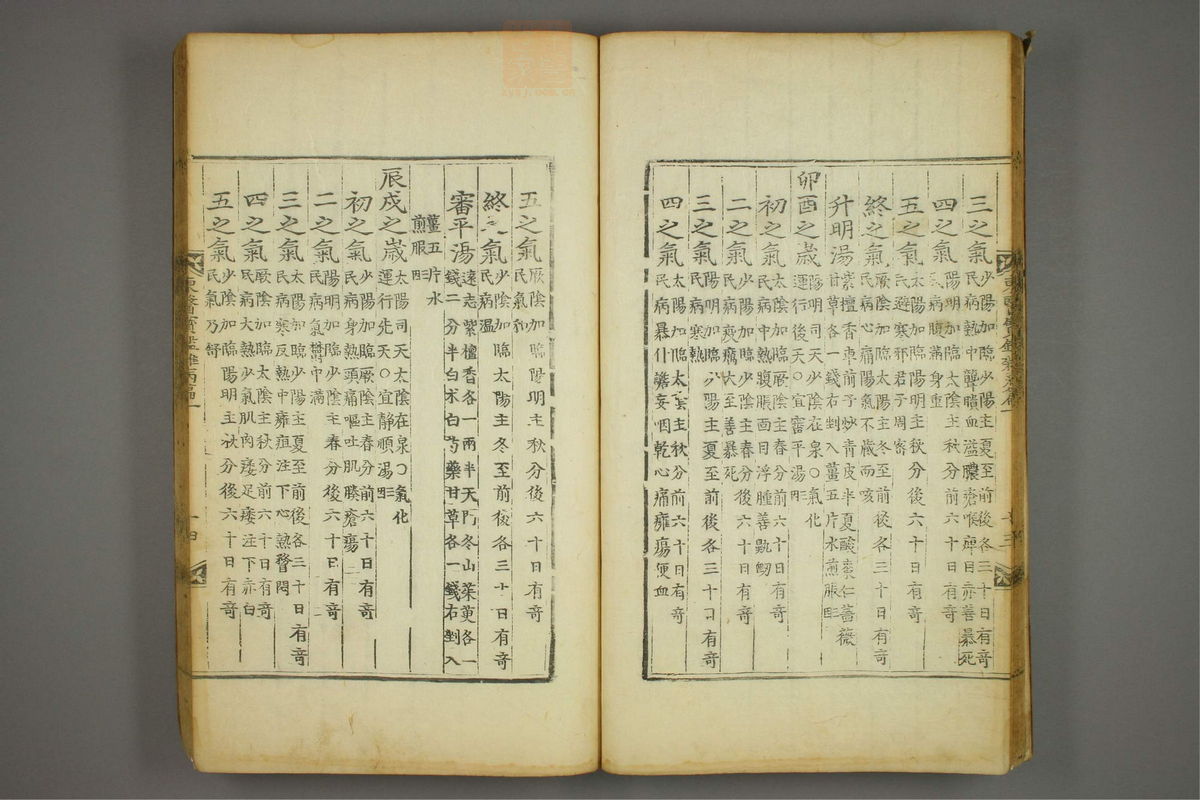 三之氣 少陽加臨少陽主夏至前後各三十日有奇
民病熱中聾瞑血溢膿瘡喉痺目赤善暴死
四之氣 陽明加臨太陰主秋分前六十日有奇
民病腹滿身重
五之氣 太陽加臨陽明主秋分後六十日有奇
民避寒邪君子周密
終之氣 厥陰加臨太陽主冬至前後各三十日有奇
民病心痛陽氣不藏而咳
升明湯 紫檀香車前子炒青皮半夏酸棗仁薔薇
甘草各一錢右剉入薑五片水煎服
卯酉之歲 陽明司天少陰在泉○氣化
運行後天○宜審平湯
初之氣 太陰加臨厥陰主春分前六十日有奇
民病中熱腹脹面目浮腫善鼽衂
二之氣 少陽加臨少陰主春分後六十日有奇
民病疫癘大至善暴死
三之氣 陽明加臨少陽主夏至前後各三十日有奇
民病寒熱
四之氣 太陽加臨太陰主秋分前六十日有奇
民病暴仆譫妄咽乾心痛癰瘍便血
五之氣 厥陰加臨陽明主秋分後六十日有奇
民氣和
終之氣 少陰加臨太陽主冬至前後各三十日有奇
民病溫
審平湯 遠志紫檀香各一兩半天門冬山茱萸各一
錢二分半白朮白芍藥甘草各一錢右剉入
薑五片水
煎服
辰戌之歲 太陽司天太陰在泉○氣化
運行先天○宜靜順湯
初之氣 少陽加臨厥陰主春分前六十日有奇
民病身熱頭痛嘔吐肌腠瘡瘍
二之氣 陽明加臨少陰主春分後六十日有奇
民病氣鬱中滿
三之氣 太陽加臨少陽主夏至前後各三十日有奇
民病寒反熱中癰疽注下心熱瞀悶
四之氣 厥陰加臨太陰主秋分前六十日有奇
民病大熱少氣肌肉痿足痿注下赤白
五之氣 少陰加臨陽明主秋分後六十日有奇
民氣乃舒
東醫寶鑑雜病篇一
十四